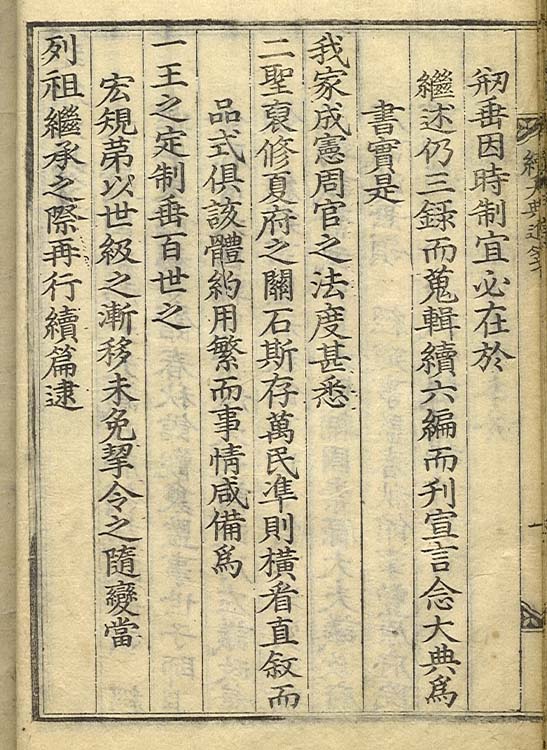 續大典進箋
一
刱垂因時制宜必在於
繼述仍三録而蒐輯續六編而刋宣言念大典爲
書實是
我家成憲周官之法度甚悉
二聖裒修夏府之關石斯存萬民凖則橫看直敘而
品式俱該體約用繁而事情咸備爲
一王之定制垂百世之
宏規苐以世級之漸移未免挈令之隨變當
列祖繼承之際再行續篇逮